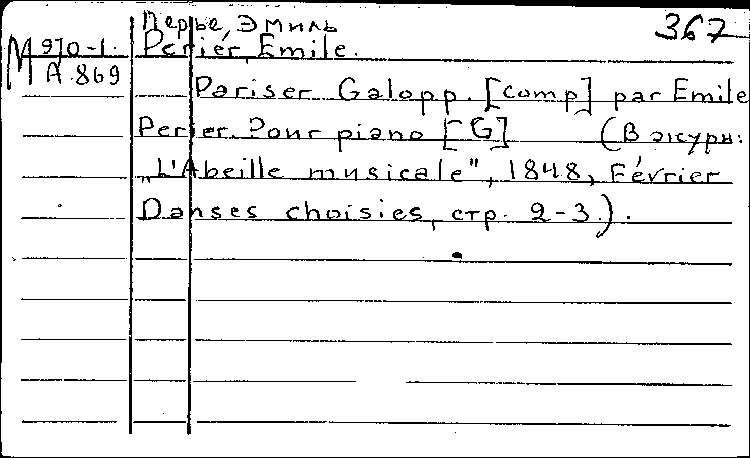 Перье, Эмиль 367
М 970-1. Perier, Emile.
А.869
Pariser Galopp. [comp] par Emile
Perier. Pour piano [G] (В журн:
„L'Abeille musicale", 1848, Février
Danses choisies, стр. 2-3.).